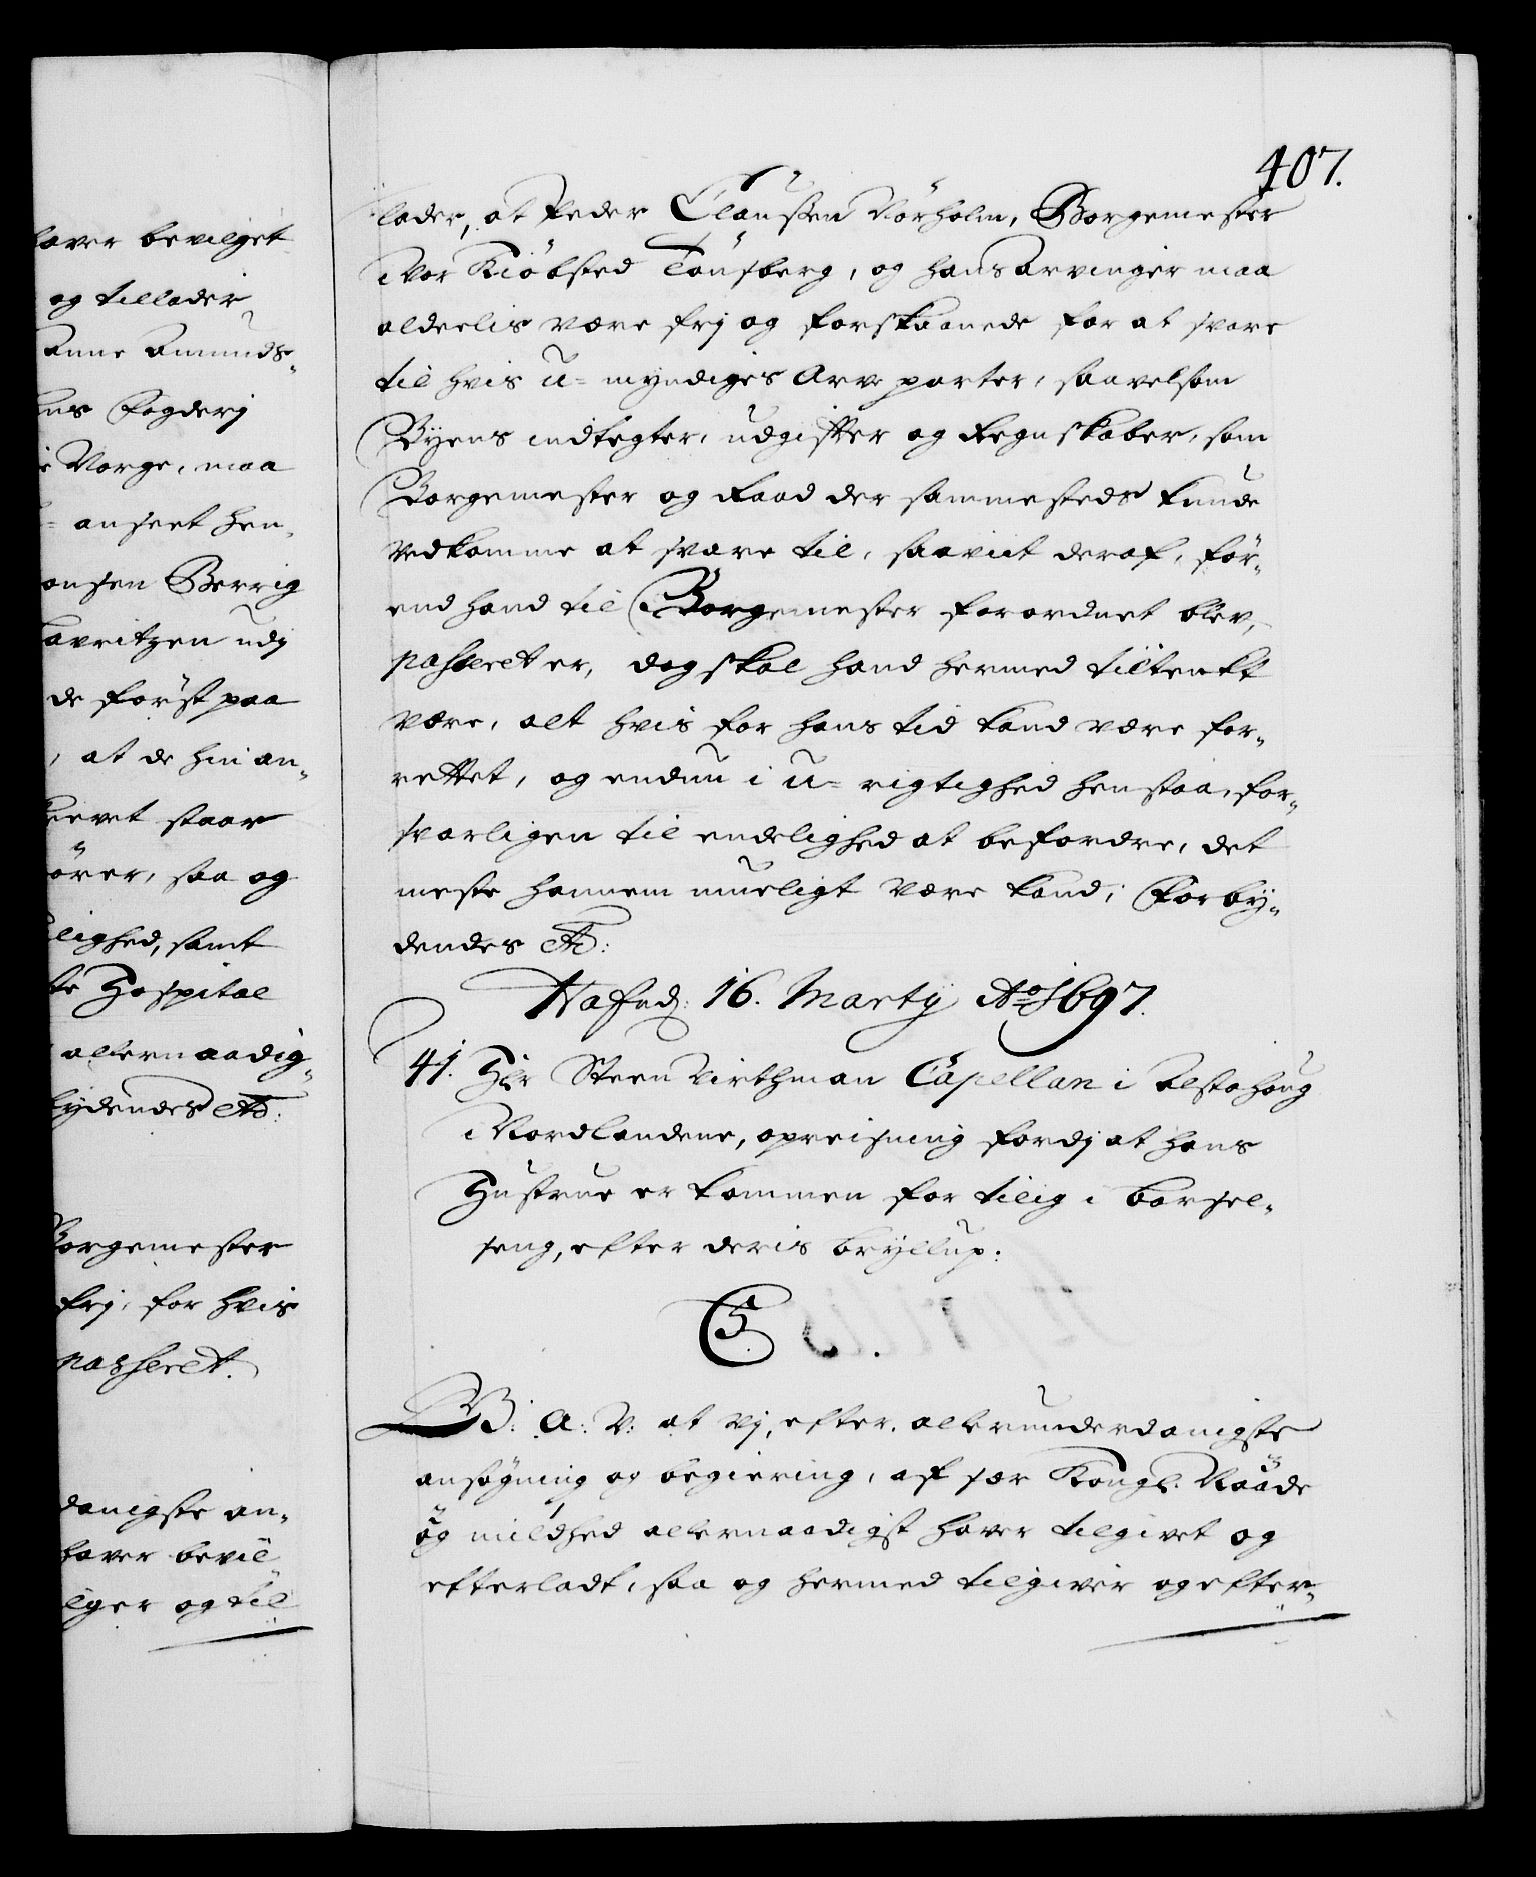 407.
haver bevilget
og tillader
Anne Amunds-
Fogderj
Norge, maa
anseet hen-
Berrig
Lavritzen udj
de først paa
, at de hin an-
staar
ører, saa og
lighed, samt
Hospital
allernaadig-
bydendes etc:
Borgemester
frj, for hvis
passeret.
danigste an-
haver bevil-
liger og til
lader, at Peder Claussen Nörholm, Borgemester
i Vor Kiöbsted Tönsberg, og hans Arvinger maa
aldeelis være frj og forskaanede for at svare
til hvis u-myndiges Arve parter, saavelsom
Byens indtegter, udgiffter og Regnskaber, som
Borgemester og Raad der sammesteds kunde
vedkomme at svare til, saavit deraf, för-
end hand til Borgemester forordnet blev,
passeret er, dog skal hand hermed tiltenkt
være, alt hvis for hans tid kand være for-
rettet, og endnu i u-rigtighed henstaa, for-
svarligen til endelighed at befordre, det
meste hannem mueligt være kand; Forby-
dendes etc:
Hafnd: 16. Martij Ao 1697.
41. Hr Steen Wirthman Capellan i Alstahoug
i Nordlandene, opreisning fordj at hans
Hustrue er kommen for tilig i barsel-
seng, efter deris bryllup.
C5
G: A: V: at Vj, efter allerunderdanigste
ansögning og begiering, af sær Kongl: Naade
og mildhed allernaadigst haver tilgivet og
efterladt, saa og hermed tilgiver og efter-